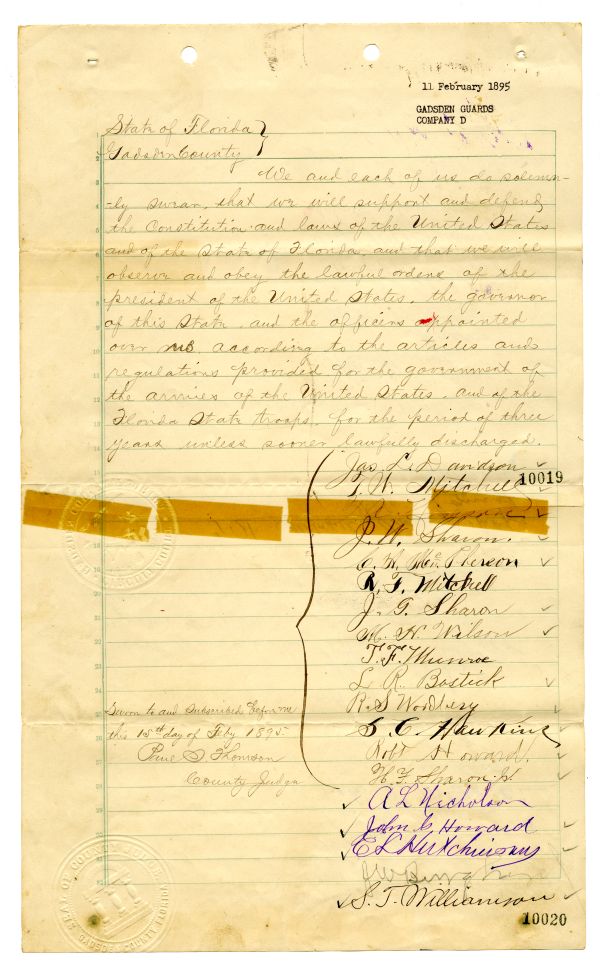 11 February 1895
GADSDEN GUARDS
COMPANY D
State of Florida }
Gadsden County }
We and each of us do solemn-
-ly swear, that we will support and defend
the Constitution and laws of the United States
and of the State of Florida, and that we will
observe and obey the lawful orders of the
president of the United States, the governor
of this State, and the officers appointed
over us according to the articles and
regulations provided for the government of
the armies of the United States, and of the
Florida State troops, for the period of three
years unless sooner lawfully discharged.
Jas. L. Davidson
10019
T. W. Mitchell
J. W. Sharon.
C. H. McPherson
R. F. Mitchell
J. G. Sharon
M. H. Wilson
T. F. Munroe
L R Bostick
R. S Woodbery
S. C. Hawkins
Robt Howard.
H. F. Sharon Jr
Sworn to and subscribed before me
this 15th day of Feby 1895
Thomson
County Judge
A L Nicholson
John C Howard
E L Hutchinson
S. T. Williamson
10020